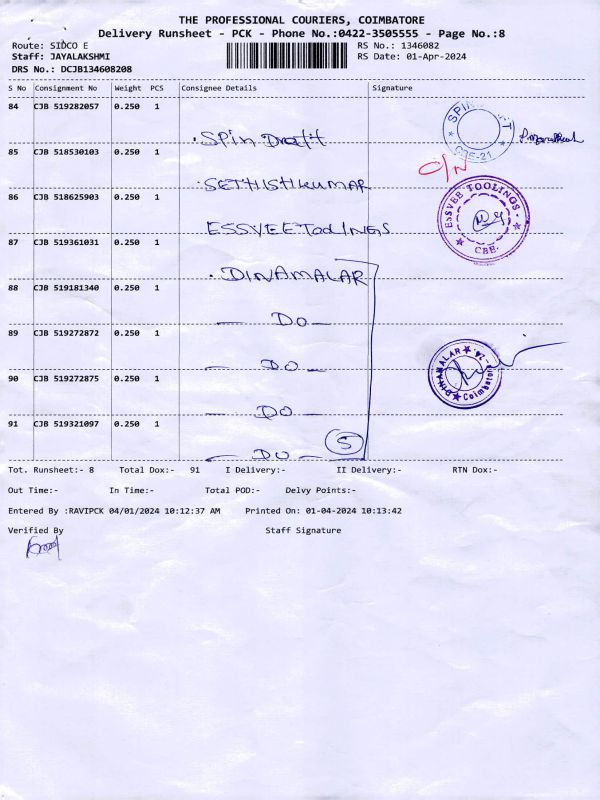 THE PROFESSIONAL COURIERS, COIMBATORE
Delivery Runsheet - PCK - Phone No.:0422-3505555 - Page No.:8
Route: SIDCO E
RS No.: 1346082
Staff: JAYALAKSHMI
RS Date: 01-Apr-2024
DRS No.: DCJB134608208
S No Consignment No Weight PCS Consignee Details Signature
84 CJB 519282057 0.250 1
Spin Draft
CBE-21
85 CJB 518530103 0.250 1
C/N
SETHISHKUMAR
86 CJB 518625903 0.250 1
ESSVEE TOOLINGS
ESSVEE TOOLINGS
CBE
87 CJB 519361031 0.250 1
DINAMALAR
88 CJB 519181340 0.250 1
DO
89 CJB 519272872 0.250 1
DO
DINAMALAR
Coimbatore
90 CJB 519272875 0.250 1
DO
91 CJB 519321097 0.250 1
DO 5
Tot. Runsheet:- 8 Total Dox:- 91 I Delivery:- II Delivery:- RTN Dox:-
Out Time:- In Time:- Total POD:- Delvy Points:-
Entered By :RAVIPCK 04/01/2024 10:12:37 AM Printed On: 01-04-2024 10:13:42
Verified By Staff Signature